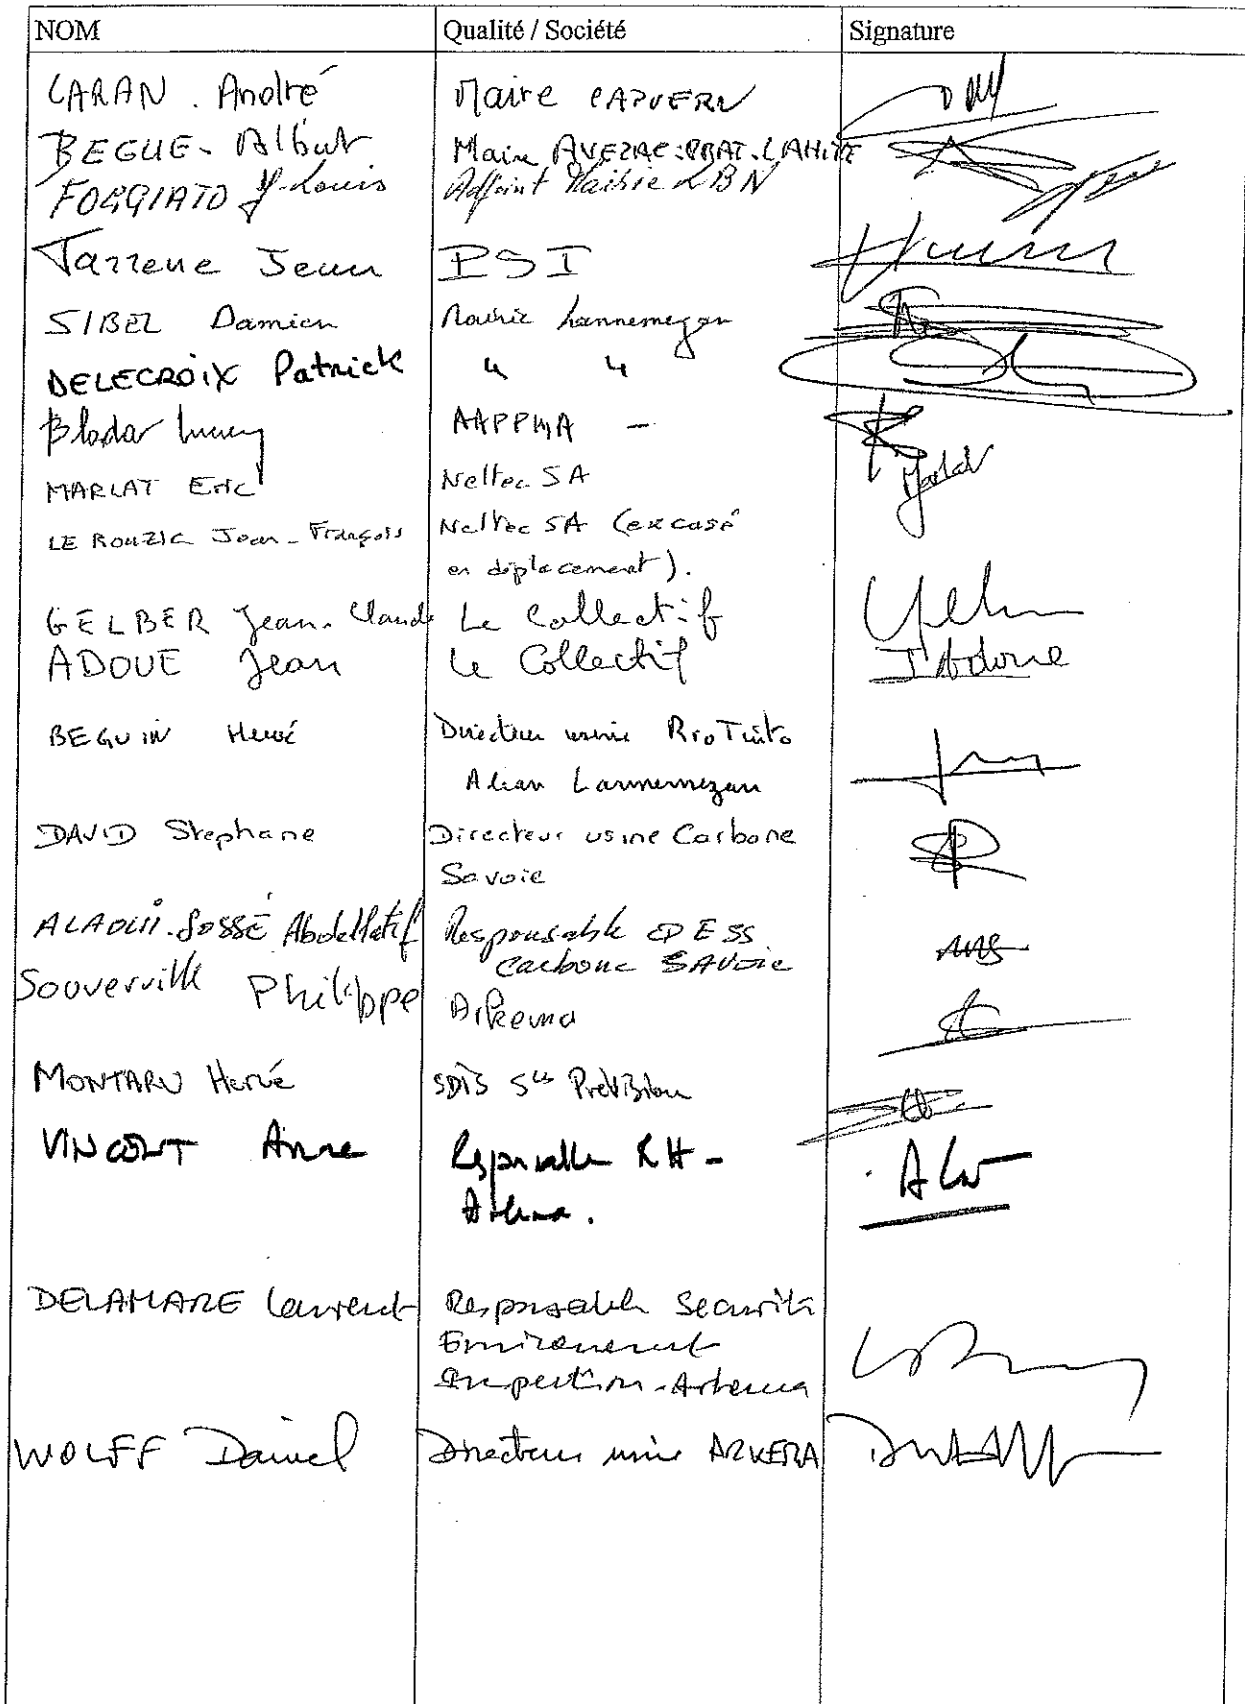 NOM Qualité / Société Signature
CARAN . André Maire CAPVERN
BEGUE - Albert Maire AVEZAC-PRAT-LAHITTE
FOGGIATO J-Louis Adjoint Mairie LBN
Tarrene Jean PSI
SIBEL Damien Mairie Lannemezan
DELECROIX Patrick " "
AAPPMA -
MARLAT Eric Neltec SA
LE ROUZIC Jean-François Neltec SA (excusé
en déplacement).
GELBER Jean-Claude Le Collectif
ADOUE Jean Le Collectif
BEGUIN Hervé Directeur usine RioTinto
Alcan Lannemezan
DAVID Stephane Directeur usine Carbone
Savoie
ALAOUI-SOSSE Abdellatif Responsable
Carbone SAVOIE
Souverville Philippe Arkema
MONTARU Hervé SDIS Prévision
VINCENT Anne Responsable RH -
Arkema.
DELAMARE Laurent Responsable Securité
Environnement
Inspection - Arkema
WOLFF Daniel Directeur usine ARKEMA